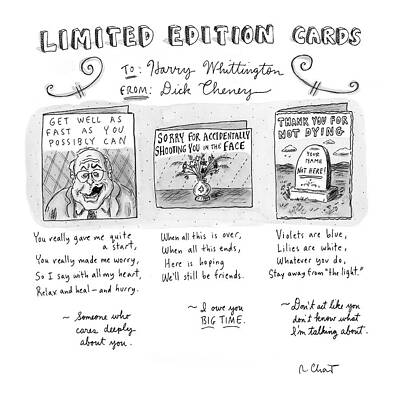 LIMITED EDITION CARDS
TO: Harry Whittington
FROM: Dick Cheney
GET WELL AS
FAST AS YOU
POSSIBLY CAN
You really gave me quite
a start,
You really made me worry,
So I say with all my heart,
Relax and heal – and hurry.
~ Someone who
cares deeply
about you.
SORRY FOR ACCIDENTALLY
SHOOTING YOU IN THE FACE
When all this is over,
When all this ends,
Here is hoping
We'll still be friends.
~ I owe you
BIG TIME.
THANK YOU FOR
NOT DYING
YOUR
NAME
NOT HERE!
Violets are blue,
Lilies are white,
Whatever you do,
Stay away from "the light."
~ Don't act like you
don't know what
I'm talking about.
R Chast